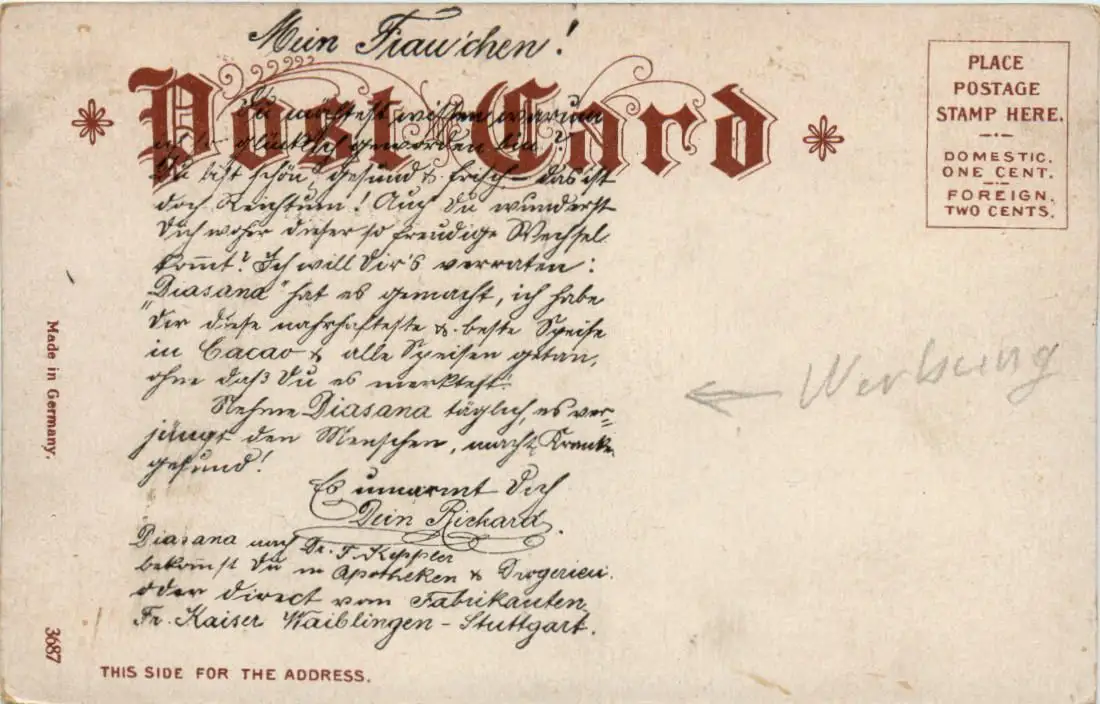 Mein Frau'chen!
Post Card
Du möchtest wissen warum
ich so glücklich geworden bin?
Du bist schön, gesund & frisch – das ist
doch Reichtum! Auch du wunderst
Dich woher dieser so freudige Wechsel
kom̅t? Ich will Dir's verraten:
„Diasana" hat es gemacht, ich habe
Dir diese nahrhafteste & beste Speise
in Cacao & alle Speisen getan,
ohne daß Du es merktest.
Nehme Diasana täglich, es ver-
jüngt den Menschen, macht Kranke
gesund!
Es umarmt Dich
Dein Richard.
Diasana nach Dr. F. Keppler
bekom̅st Du in Apotheken & Drogerien.
oder direct vom Fabrikanten
Fr. Kaiser Waiblingen - Stuttgart.
THIS SIDE FOR THE ADDRESS.
Made in Germany.
3687
PLACE
POSTAGE
STAMP HERE.
DOMESTIC.
ONE CENT.
FOREIGN.
TWO CENTS.
← Werbung